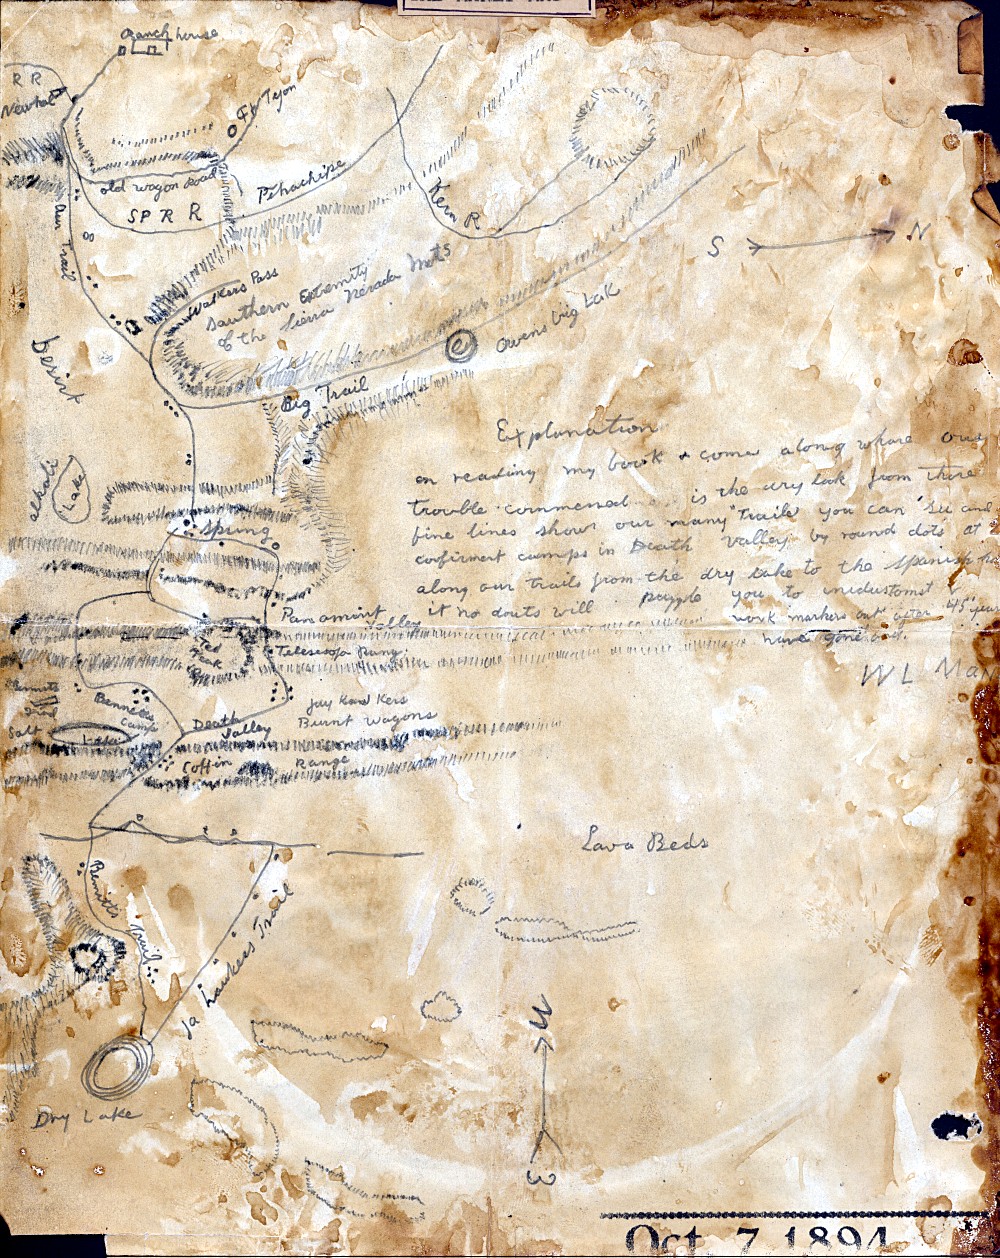 Ranch house
R R
Newhal
Ft Tejon
old wagon Road
Pihachipe
S P R R
Kern R
our Trail
S N
Walkers Pass
Southern Extremity
of the Sierra Nevada Mts
Owens big Lak
Desirt
Big Trail
Explanation
on reading my book & come along whare our
trouble commenced is the dry lak from there
fine lines show our many Trails you can see and
camps in Death Valley by round dots at
along our trails from the dry lake to the Spanish
it no douts will puzzle you to
work markers out after 45 years
have gone
W L Man
alkali
Lake
Spring
Panamint
Valley
Telescop Rang
Tel
Peak
Bennetts
Camp
Death
Valley
Jay Haw Kers
Burnt Wagons
Salt
Lake
Coffin Range
Lava Beds
Bennetts Trail
Ja Haukers Trail
W
Dry Lake
E
Oct. 7, 1894